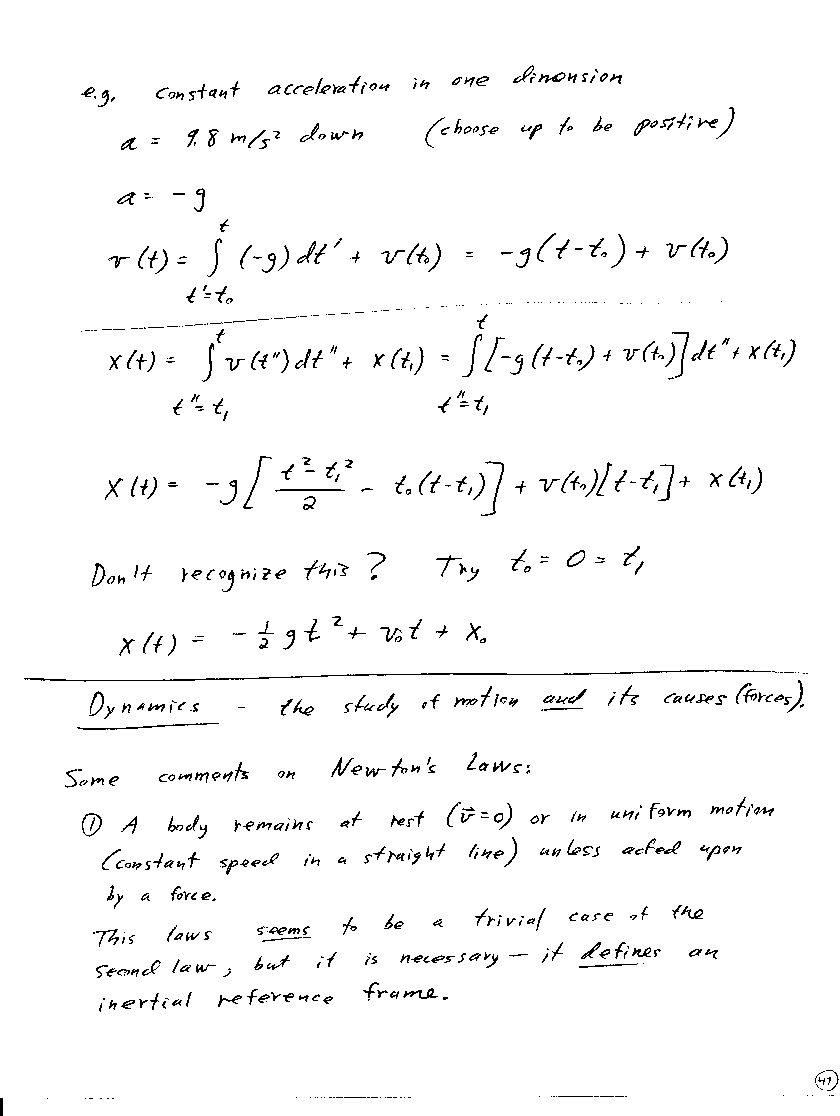 e.g. constant acceleration in one dimension
a = 9.8 m/s² down (choose up to be positive)
a = -g
v(t) = ∫_{t'=t₀}^{t} (-g) dt' + v(t₀) = -g(t-t₀) + v(t₀)
x(t) = ∫_{t''=t₁}^{t} v(t'') dt'' + x(t₁) = ∫_{t''=t₁}^{t} [-g(t-t₀) + v(t₀)] dt'' + x(t₁)
x(t) = -g [ (t² - t₁²)/2 - t₀(t-t₁) ] + v(t₀)[t-t₁] + x(t₁)
Don't recognize this? Try t₀ = 0 = t₁
x(t) = -½ g t² + v₀t + x₀
Dynamics - the study of motion and its causes (forces).
Some comments on Newton's Laws:
① A body remains at rest (v⃗=0) or in uniform motion
(constant speed in a straight line) unless acted upon
by a force.
This laws seems to be a trivial case of the
second law, but it is necessary — it defines an
inertial reference frame.
41